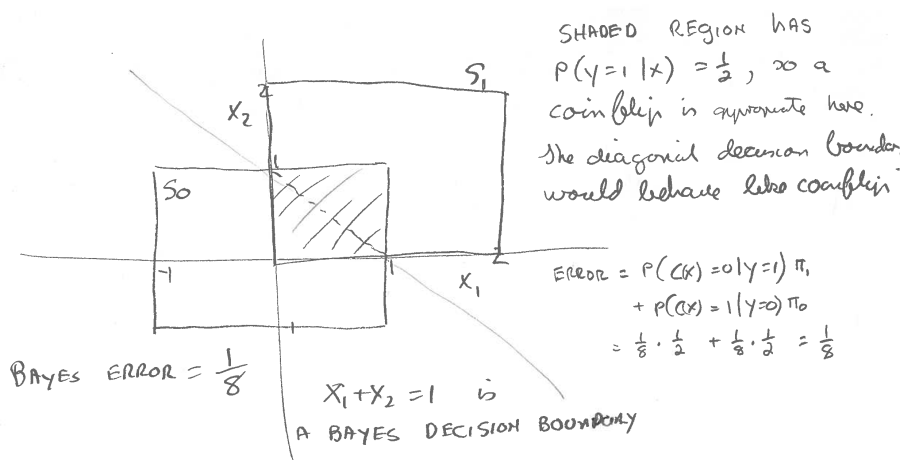 SHADED REGION HAS
P(y=1|x) = 1/2, so a
coinflip is appropriate here.
The diagonal decision boundary
would behave like coinflip
S1
2
X2
1
S0
-1
1
2
X1
-1
ERROR = P(C(x)=0|y=1) π1
+ P(C(x)=1|y=0) π0
= 1/8 · 1/2 + 1/8 · 1/2 = 1/8
BAYES ERROR = 1/8
X1+X2 = 1 is
A BAYES DECISION BOUNDARY